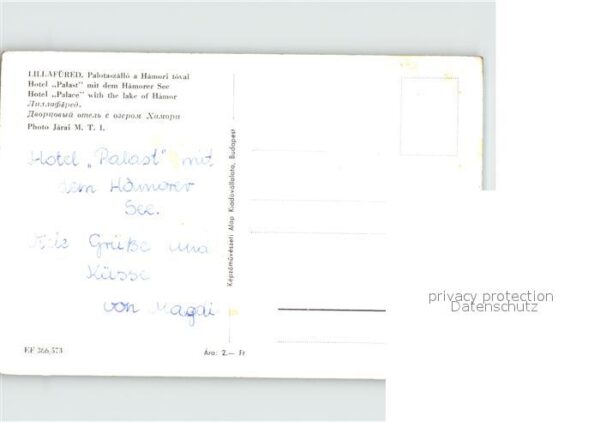 LILLAFÜRED. Palotaszálló a Hámori tóval
Hotel „Palast" mit dem Hámorer See
Hotel „Palace" with the lake of Hámor
Лиллафюред.
Дворцовый отель с озером Хамори
Photo Járai M. T. I.
Hotel „Palast" mit
dem Hámorer
See.
Grüße und
Küsse
von Magdi
EF 266/573
Ára: 2.— Ft
Képzőművészeti Alap Kiadóvállalata, Budapest
privacy protection
Datenschutz